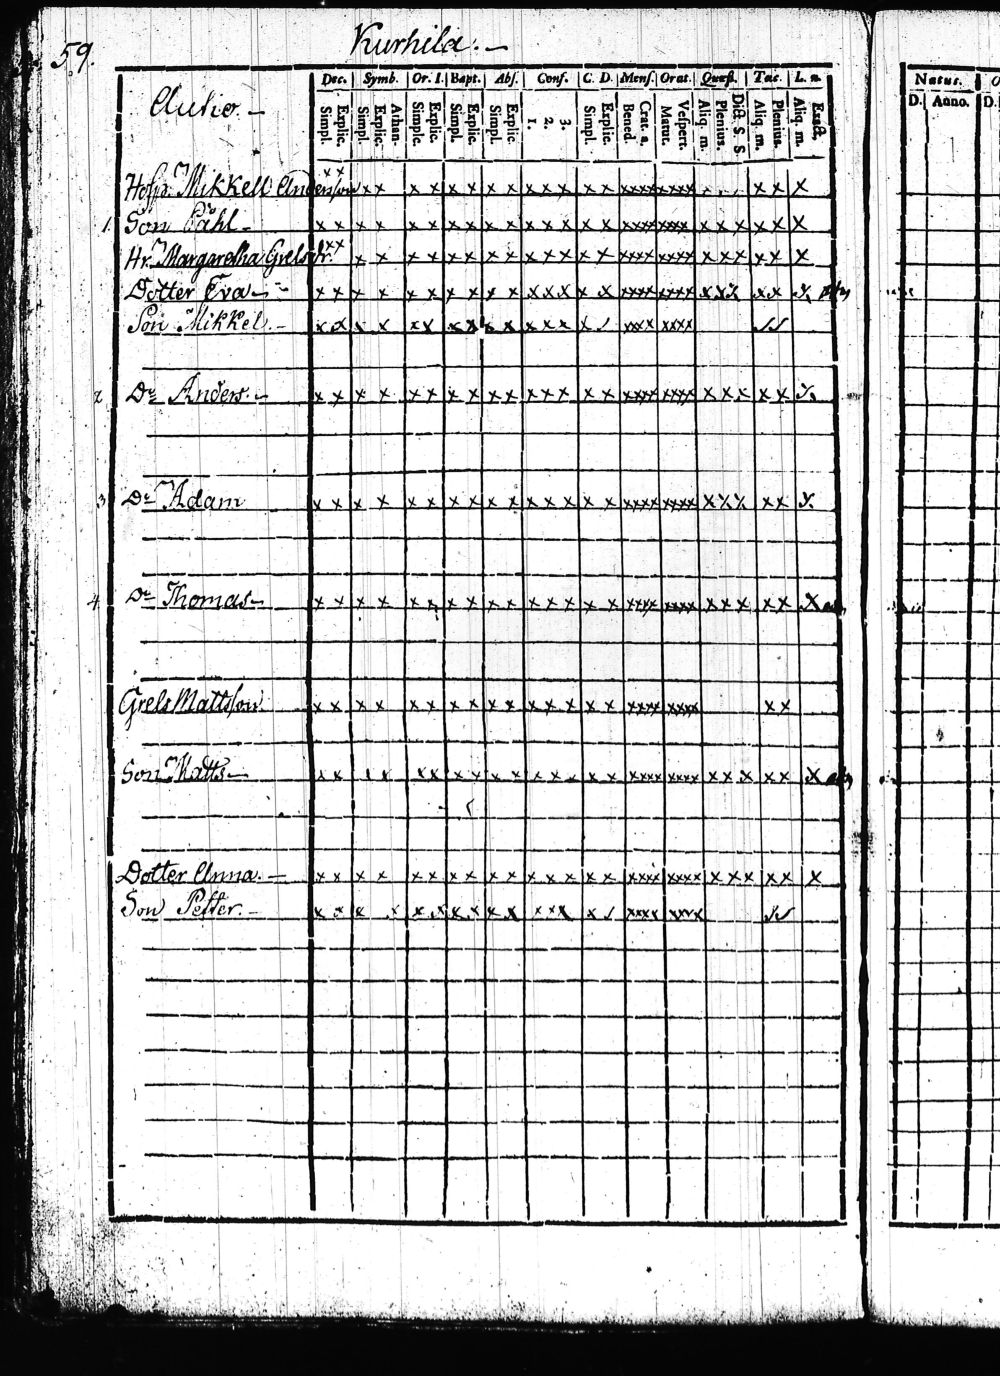 59.
Kurhila.
Dec. Symb. Or. I. Bapt. Abs. Conf. C. D. Mens. Orat. Quæst. Tac. L. n.
Natus.
Autio.
Simpl. Explic. Simpl. Explic. Athan. Simplic. Explic. Simpl. Explic. Simpl. Explic 1. 2. 3. Simpl. Explic. Bened. Grat. a. Matut. Vespert. Aliq. m. Plenius. Dict. S. S Aliq. m. Plenius. Aliq. m. Exact.
D. Anno. D.
Mikkell Andersson x x x x x x x x x x x x x xxxx xxxx x x x
1. Son Påhl x x x x x x x x x x x x x x x xxxx xxxx x x x x x x
Hr. Margaretha Grels dr. x x x x x x x x x x x x x x x xxxx xxxx x x x x x x
Dotter Eva x x x x x x x x x x x x x x x xxxx xxxx x x x x x
Son Mikkel. x x x x x x x x x x x x x x xxxx xxxx
2 Dº Anders. x x x x x x x x x x x x x x x xxxx xxxx x x x x x
3 Dº Adam x x x x x x x x x x x x x x x xxxx xxxx x x x x x
4. Dº Thomas x x x x x x x x x x x x x x x xxxx xxxx x x x x x x
Grels Mattsson x x x x x x x x x x x x x x x xxxx xxxx x x
Son Matts x x x x x x x x x x x x xxxx xxxx x x x x x x
Dotter Anna. x x x x x x x x x x x x x x x xxxx xxxx x x x x x x
Son Petter. x x x x x x x x x x x x x x xxxx xxxx